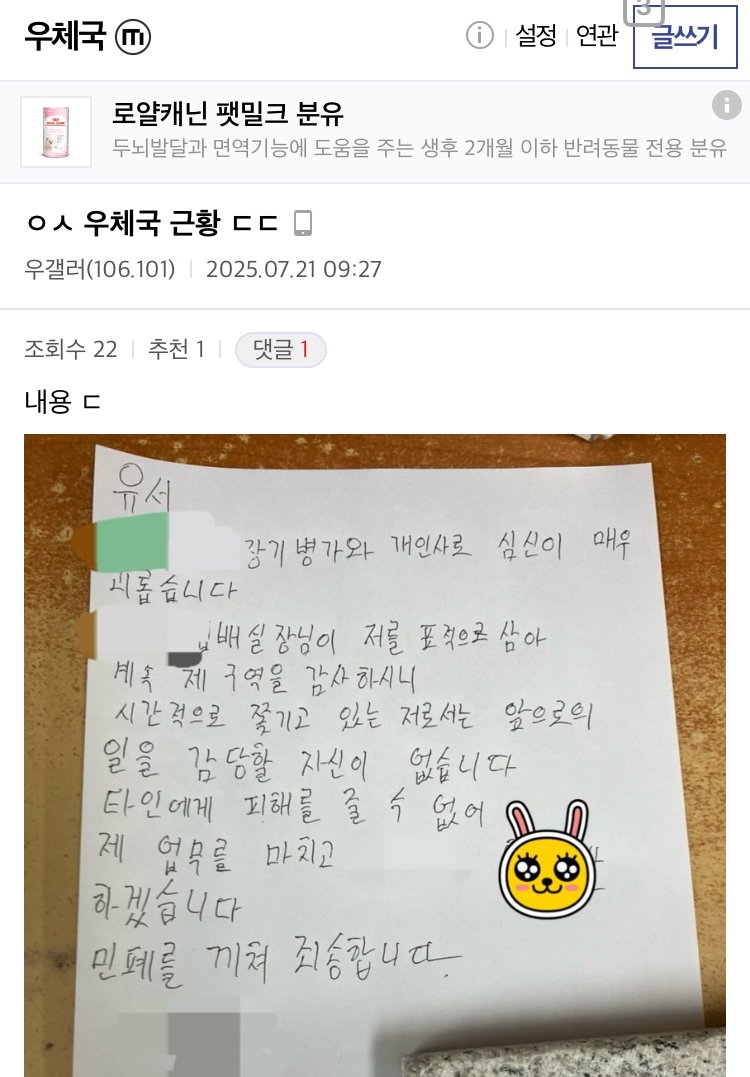 우체국 m
설정 연관 글쓰기
3
로얄캐닌 팻밀크 분유
두뇌발달과 면역기능에 도움을 주는 생후 2개월 이하 반려동물 전용 분유
ㅇㅅ 우체국 근황 ㄷㄷ
우갤러(106.101) 2025.07.21 09:27
조회수 22 추천 1 댓글 1
내용 ㄷ
유서
장기병가와 개인사로 심신이 매우
괴롭습니다
집배실장님이 저를 표적으로 삼아
계속 제 구역을 감사하시니
시간적으로 쫓기고 있는 저로서는 앞으로의
일을 감당할 자신이 없습니다
타인에게 피해를 줄 수 없어
제 업무를 마치고
하겠습니다
민폐를 끼쳐 죄송합니다